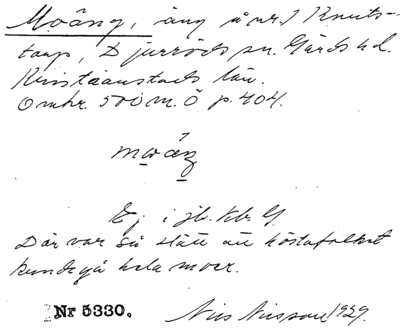 Moäng, äng å nr. 1 Knuts-
torp, Djurröds sn. Gärds hd.
Kristianstads län.
Omkr. 500 m. Ö p. 404.
moäŋ
Ej i jb. kb. G
Där var så slätt att höstafolket
kunde gå hela moen.
Nr 5330.
Nils Nilsson 1929.